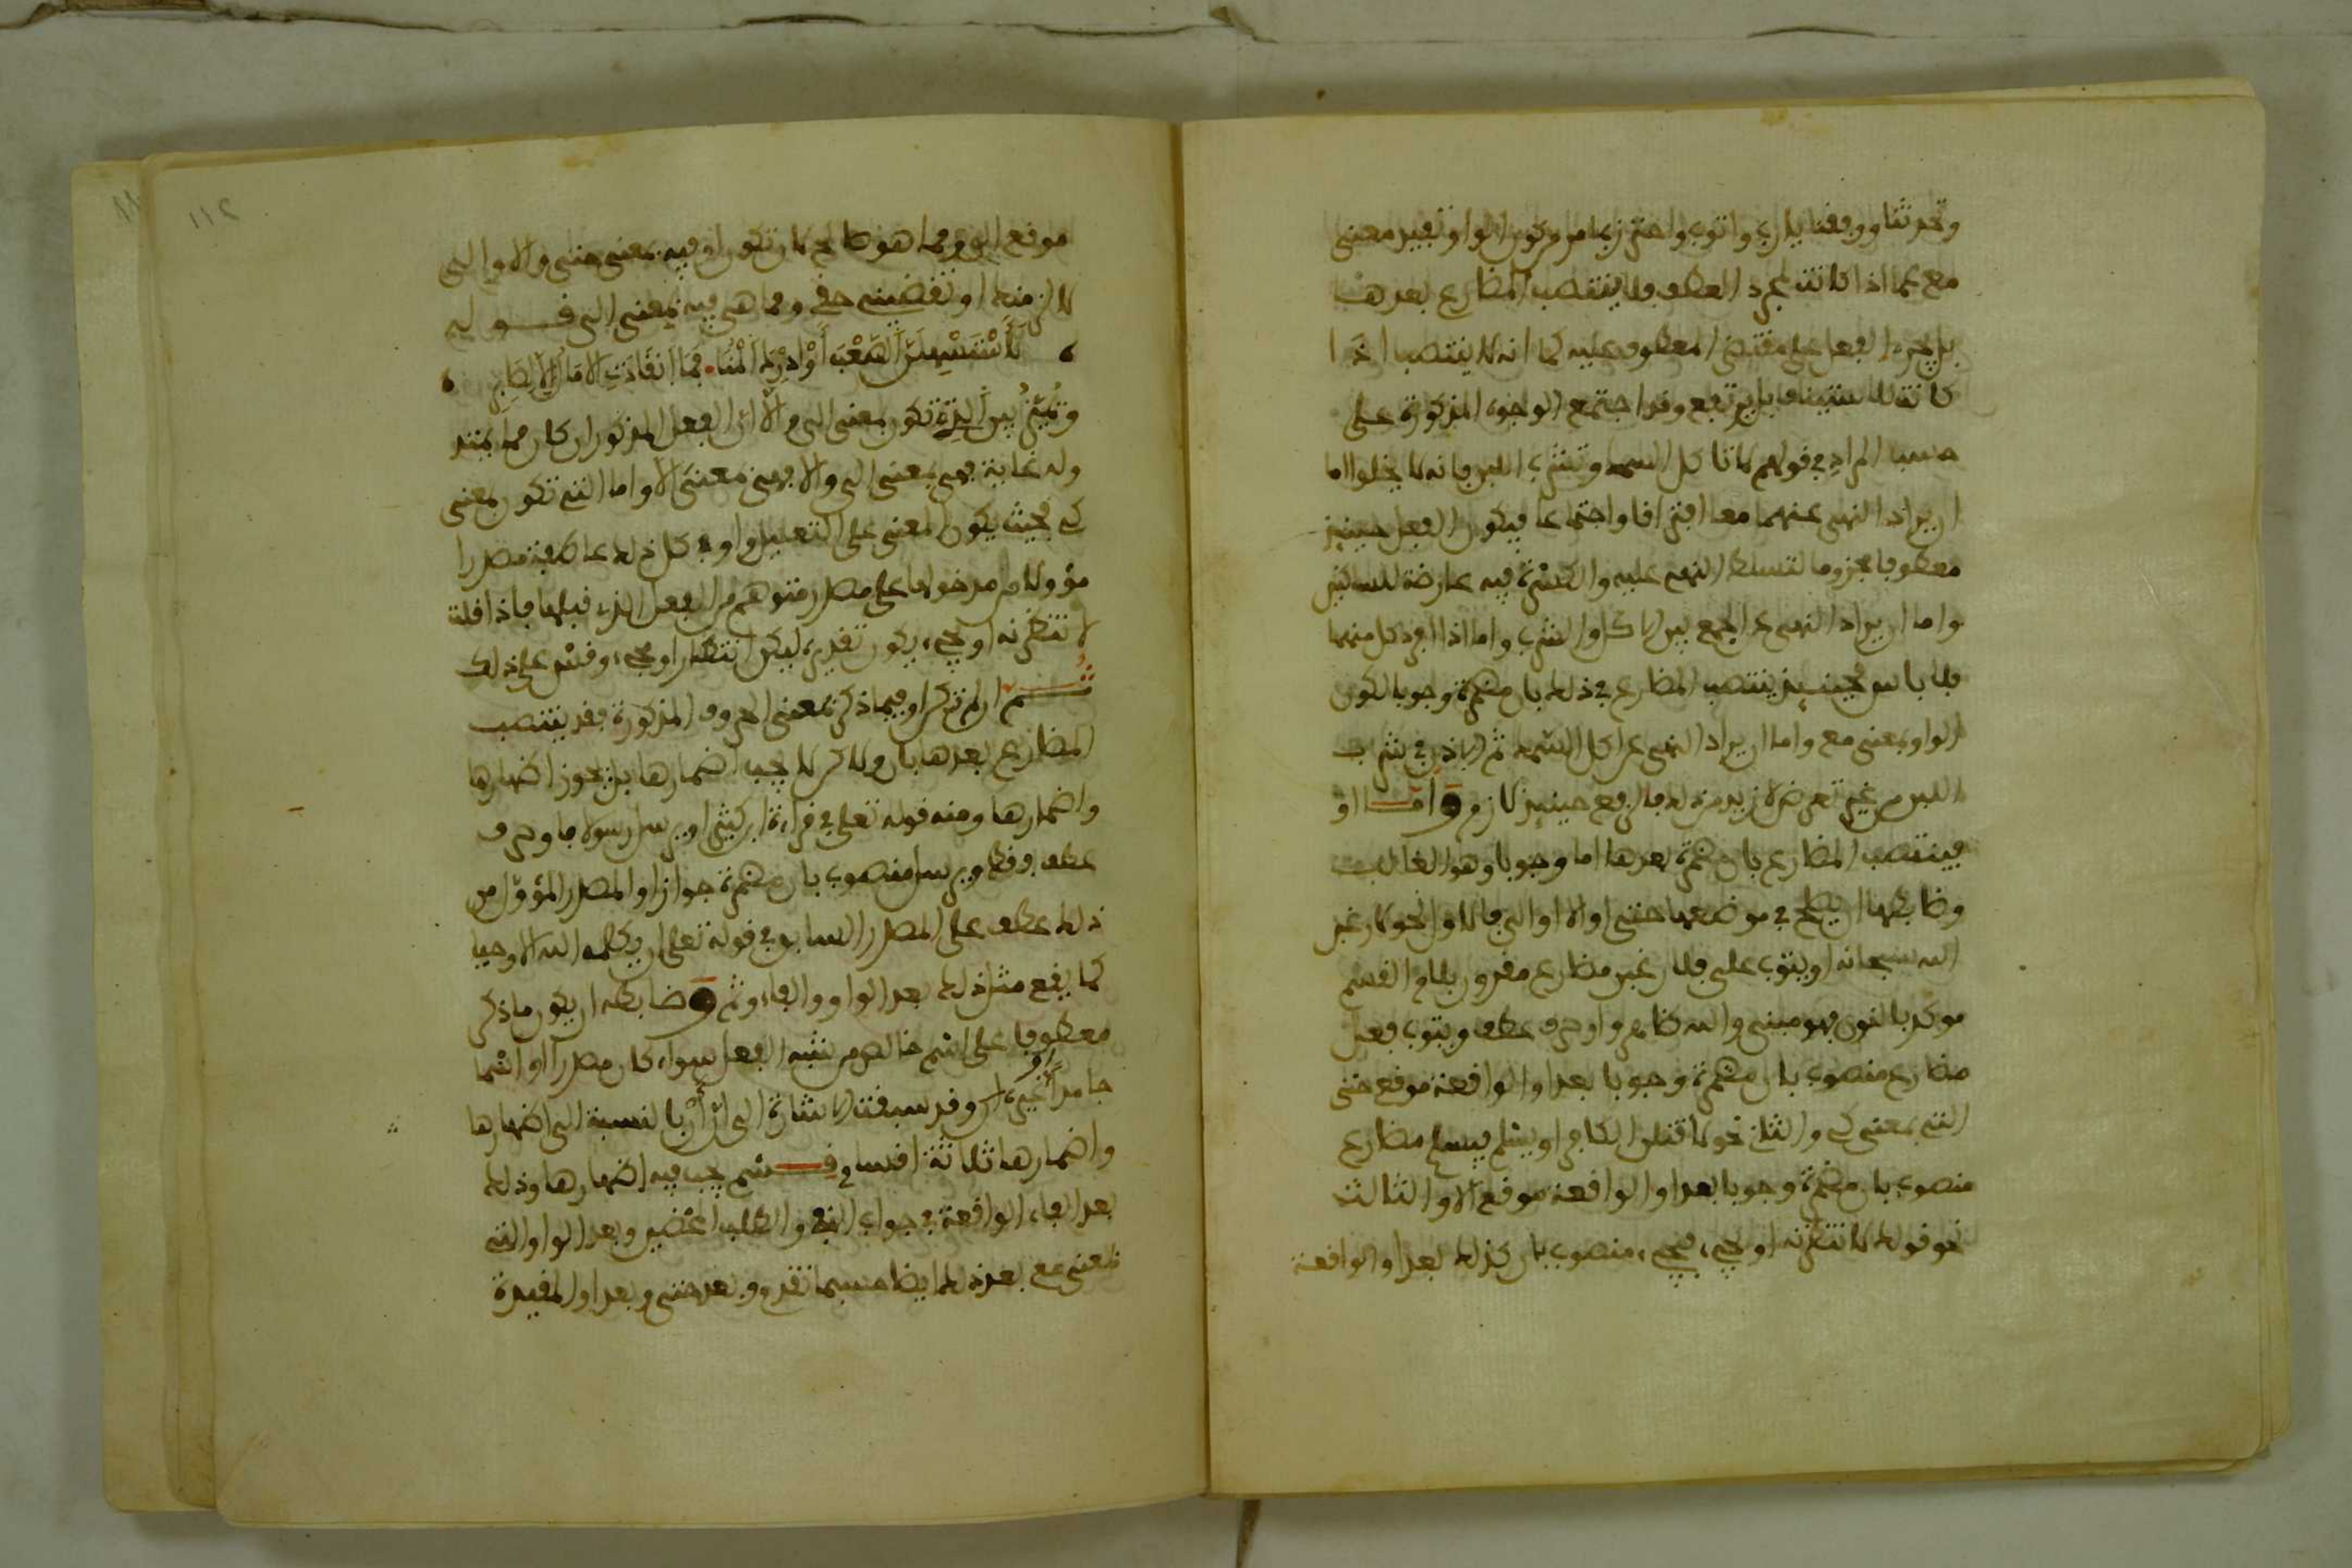 وتحدثنا ووفقنا يا رب واتوب واحترز بما مر من كون الواو تفيد معنى
مع عما اذا كانت لمجرد العطف فلا ينتصب المضارع بعدها
بل يجري الفعل على مقتضى المعطوف عليه كما انه لا ينتصب اذا
كانت للاستيناف بل يرتفع وقد اجتمع الوجوه المذكورة على
حسب المراد في قولهم لا تاكل السمك وتشرب اللبن فانه لا يخلوا اما
ان يراد النهي عنهما معا افتراقا واجتماعا فيكون الفعل حينيذ
معطوفا مجزوما لتسلط النهي عليه والكسرة فيه عارضة للساكنين
واما ان يراد النهي عن الجمع بين الاكل والشرب واما اذا افرد كل منهما
فلا باس فحينيذ ينتصب المضارع في ذلك بان مضمرة وجوبا لكون
الواو بمعنى مع واما ان يراد النهي عن اكل السمك ثم الاذن في شرب
اللبن من غير تعرض لازيد من ذلك فالرفع حينيذ لازم واما او
فينتصب المضارع بان مضمرة بعدها اما وجوبا وهو الغالب
وضابطها ان يصلح في موضعها حتى او الا او الى فالاول نحو كان غير
الله سبحانه او يتوب علي فلان غير مضارع مقرون بلام القسم
موكد بالنون فهو مبني والله ظاهر واو حرف عطف ويتوب فعل
مضارع منصوب بان مضمرة وجوبا بعد او الواقعة موقع حتى
التي بمعنى كي والثاني نحو لاقتلن الكافر او يسلم فيسلم مضارع
منصوب بان مضمرة وجوبا بعد او الواقعة موقع الا والثالث
نحو قولك لانتظرنه او يجيء فيجيء منصوب بان كذلك بعد او الواقعة
موقع الى ومما هو صالح لان تكون او فيه بمعنى حتى والا والى
لالزمنك او تقضيني حقي ومما هي فيه بمعنى الى قوله
لأستسهلن الصعب أو أدرك المنا فما انقادت الامال الا لصابر
وتميز بين التي تكون بمعنى الى والا ان الفعل المذكور ان كان مما يمتد
وله غاية فهي بمعنى الى والا فهي بمعنى الا واما التي تكون بمعنى
كي فحيث يكون المعنى على التعليل واو في كل ذلك عاطفة مصدرا
مؤولا من مدخولها على مصدر متوهم من الفعل الذي قبلها فاذا قلت
لانتظرنه او يجيء يكون تقديره ليكن انتظار او مجيء وقس على ذلك
ثم ان لم تكن او فيما ذكر بمعنى الحروف المذكورة فقد ينتصب
المضارع بعدها بان ولاكن لا يجب اضمارها بل يجوز اظهارها
واضمارها ومنه قوله تعلى في قراءة ابن كثير او يرسل رسولا فاو حرف
عطف فقط ويرسل منصوب بان مضمرة جوازا والمصدر المؤول من
ذلك عطف على المصدر السابق في قوله تعلى ان يكلمه الله الا وحيا
كما يقع مثل ذلك بعد الواو والفاء وثم وضابطه ان يكون ما ذكر
معطوفا على اسم خالص من شبه الفعل سواء كان مصدرا او اسما
جامدا غيره وقد سبقت الاشارة الى ان أن بالنسبة الى اظهارها
واضمارها ثلاثة اقسام قسم يجب فيه اضمارها وذلك
بعد الفاء الواقعة في جواب النفي والطلب المحضين وبعد الواو التي
بمعنى مع بعد ذلك ايضا حسبما تقدم وبعد حتى وبعد او المفيدة